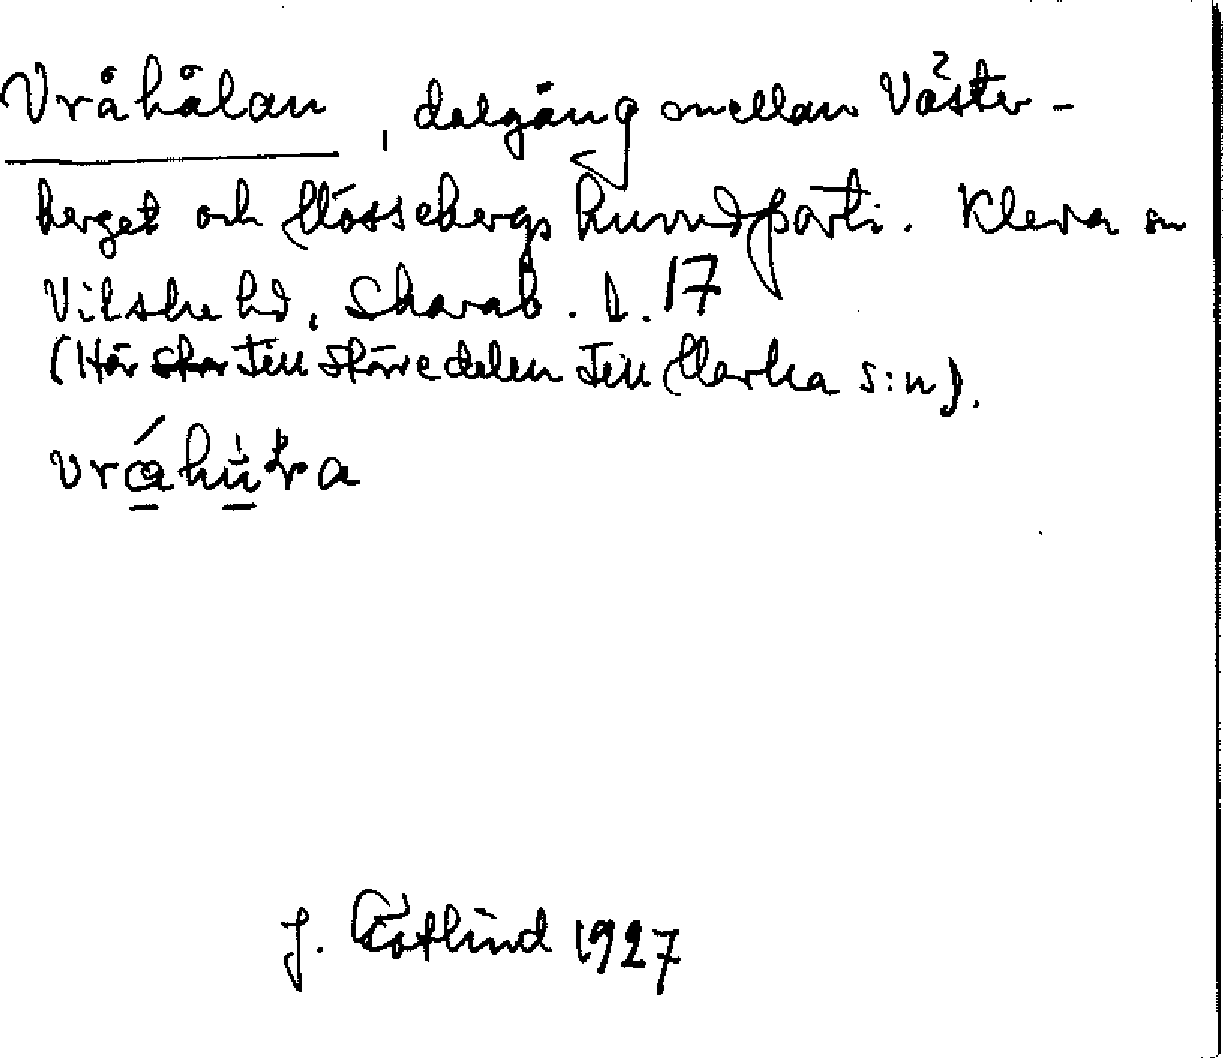 Vråhålan, dalgång mellan Väster-
berget och Mössebergs huvudparti. Kleva sn
Vilske hd, Skarab. l. 17
(Hör till större delen till Marka s:n).
vråhu̇ła
J. Götlind 1927